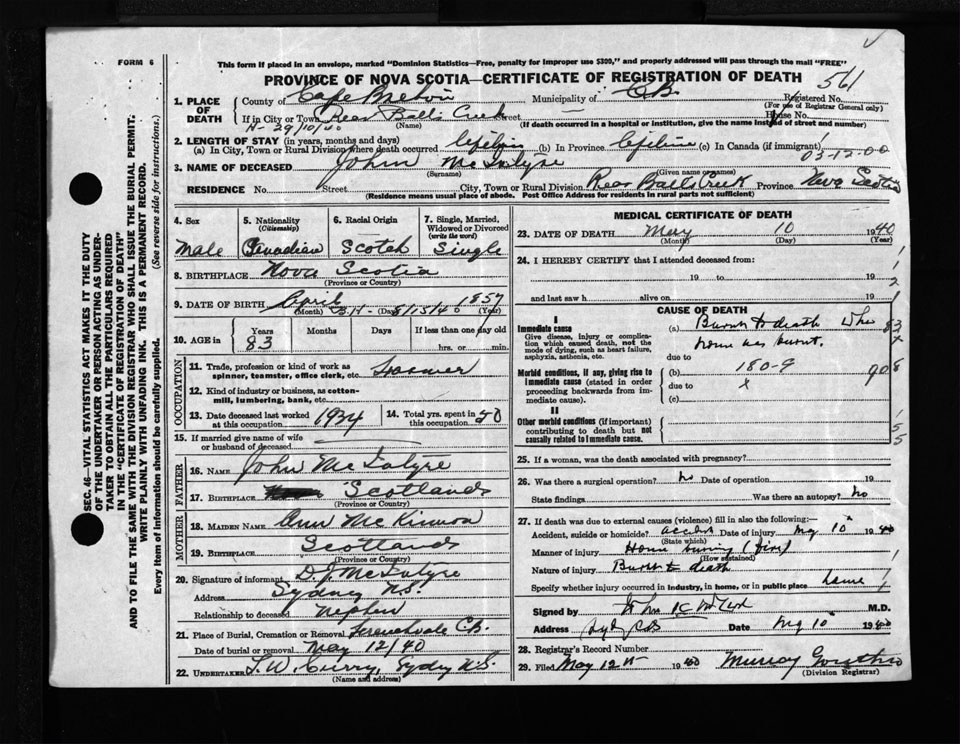 FORM 6
This form if placed in an envelope, marked "Dominion Statistics—Free, penalty for improper use $300," and properly addressed will pass through the mail "FREE"
PROVINCE OF NOVA SCOTIA—CERTIFICATE OF REGISTRATION OF DEATH
561
1. PLACE OF DEATH
County of Cape Breton Municipality of C.B. Registered No.
(For use of Registrar General only)
If in City or Town Rear Balls Creek Street House No.
(Name) (If death occurred in a hospital or institution, give the name instead of street and number)
H- 29/10/40
2. LENGTH OF STAY (in years, months and days)
(a) In City, Town or Rural Division where death occurred Lifetime (b) In Province Lifetime (c) In Canada (if immigrant)
03-12-00
3. NAME OF DECEASED John McIntyre
(Surname) (Given name or names)
RESIDENCE No. Street City, Town or Rural Division Rear Balls Creek Province Nova Scotia
(Residence means usual place of abode. Post Office Address for residents in rural parts not sufficient)
SEC. 46—VITAL STATISTICS ACT MAKES IT THE DUTY
OF THE UNDERTAKER OR PERSON ACTING AS UNDER-
TAKER TO OBTAIN ALL THE PARTICULARS REQUIRED
IN THE "CERTIFICATE OF REGISTRATION OF DEATH"
AND TO FILE THE SAME WITH THE DIVISION REGISTRAR WHO SHALL ISSUE THE BURIAL PERMIT.
WRITE PLAINLY WITH UNFADING INK. THIS IS A PERMANENT RECORD.
Every item of Information should be carefully supplied. (See reverse side for instructions.)
4. Sex
Male
5. Nationality
(Citizenship)
Canadian
6. Racial Origin
Scotch
7. Single, Married,
Widowed or Divorced
(write the word)
Single
8. BIRTHPLACE Nova Scotia
(Province or Country)
9. DATE OF BIRTH April 1857
(Month) (Day) 8/15/40 (Year)
10. AGE in
Years Months Days If less than one day old
83 hrs. or min.
OCCUPATION
11. Trade, profession or kind of work as
spinner, teamster, office clerk, etc. Farmer
12. Kind of industry or business, as cotton-
mill, lumbering, bank, etc.
13. Date deceased last worked
at this occupation 1934
14. Total yrs. spent in
this occupation 50
15. If married give name of wife
or husband of deceased
FATHER
16. NAME John McIntyre
17. BIRTHPLACE Scotland
(Province or Country)
MOTHER
18. MAIDEN NAME Ann McKinnon
19. BIRTHPLACE Scotland
(Province or Country)
20. Signature of informant D.J. McIntyre
Address Sydney N.S.
Relationship to deceased Nephew
21. Place of Burial, Cremation or Removal C.B.
Date of burial or removal May 12/40
22. UNDERTAKER L.W. Curry, Sydney N.S.
(Name and address)
MEDICAL CERTIFICATE OF DEATH
23. DATE OF DEATH May 10 1940
(Month) (Day) (Year)
24. I HEREBY CERTIFY that I attended deceased from:
19 to 19
and last saw h alive on 19
CAUSE OF DEATH
I
Immediate cause
Give disease, injury or complica-
tion which caused death, not the
mode of dying, such as heart failure,
asphyxia, asthenia, etc.
(a) Burnt to death when
home was burnt.
due to
Morbid conditions, if any, giving rise to
immediate cause (stated in order
proceeding backwards from im-
mediate cause).
(b) 180-9
due to x
(c)
II
Other morbid conditions (if important)
contributing to death but not
causally related to immediate cause.
25. If a woman, was the death associated with pregnancy?
26. Was there a surgical operation? No Date of operation 19
State findings Was there an autopsy? No
27. If death was due to external causes (violence) fill in also the following:—
Accident, suicide or homicide? accident Date of injury May 10 1940
(State which)
Manner of injury House burning (fire)
(How sustained)
Nature of injury Burnt to death
Specify whether injury occurred in industry, in home, or in public place home
Signed by M.D.
Address Date May 10 1940
28. Registrar's Record Number
29. Filed May 12 1940 Murray
(Division Registrar)